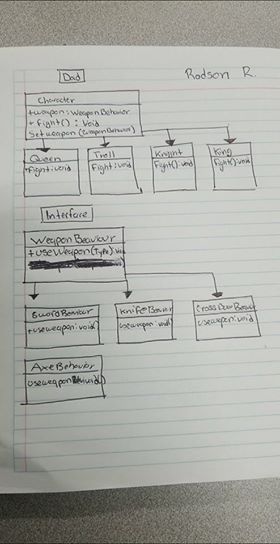 Dad
Rodson R.
Character
+weapon: WeaponBehavior
+ fight() : void
Setweapon (WeaponBehavior)
Queen
Fight: void
Troll
Fight: void
Knight
Fight(): void
King
Fight(): void
Interface
Weapon Beaviour
+ useWeapon(Type): void
Sword Beaviour
+useweapon: void()
Knife Beavior
useweapon: void
Cross Bow Beavior
useweapon: void
Axe Behavior
useweapon void()